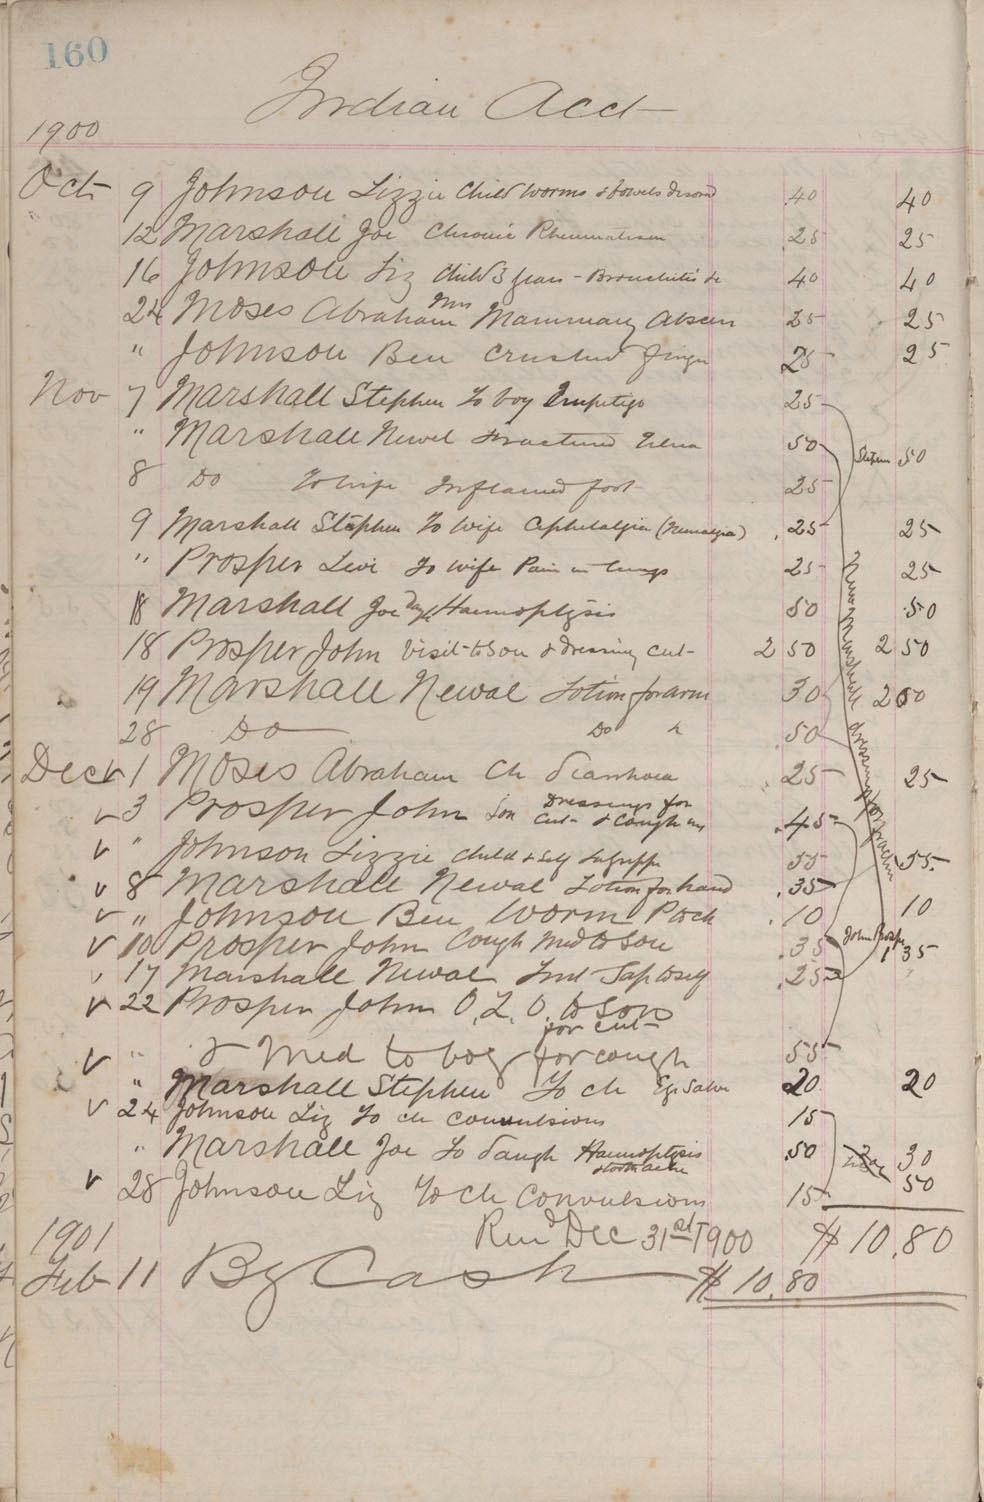 160
Indian Acct
1900
Oct 9 Johnson Lizzie Child Worms & bowels disord .40 40
" 12 Marshall Joe Chronic Rheumatism .25 25
16 Johnson Liz Child 3 years - Bronchitis &c 40 40
24 Moses Abraham Mrs Mammary Abscess 25 25
" Johnson Ben Crushed finger 25 25
Nov 7 Marshall Stephen To boy Impetigo 25
" Marshall Newel Fractured Ulna 50 Stephen 50
8 Do To wife Inflamed foot 25
9 Marshall Stephen To Wife Cephelalgia (Neuralgia) .25 25
" Prosper Levi To wife Pain in lungs 25 25
18 Marshall Joe Haemoptysis 50 .50
18 Prosper John Visit to Son & dressing cut 2 50 2 50
19 Marshall Newal Lotion for arm 30 2 50
28 Do Do " .50
Dec v 1 Moses Abraham Ch diarrhoea 25 25
v 3 Prosper John Son Dressings for cut & Cough .45
v " Johnson Lizzie child & self Lagrippe 55 .55
v 8 Marshall Newal Lotion for hand .35
v " Johnson Ben Worm Pock .10 10
v 10 Prosper John Cough Med to Son .35 John Prosper 1 35
v 17 Marshall Newal .25
v 22 Prosper John O. L. O. to Son for cut
v " & Med to boy for cough 55
" Marshall Stephen To ch Salve 20 20
v 24 Johnson Liz To ch Convulsions 15
" Marshall Joe To daugh Haemoptysis & toothache .50 30
v 28 Johnson Liz To ch Convulsions 15 50
Rend Dec 31st 1900 $ 10.80
1901
Feb 11 By Cash $ 10.80